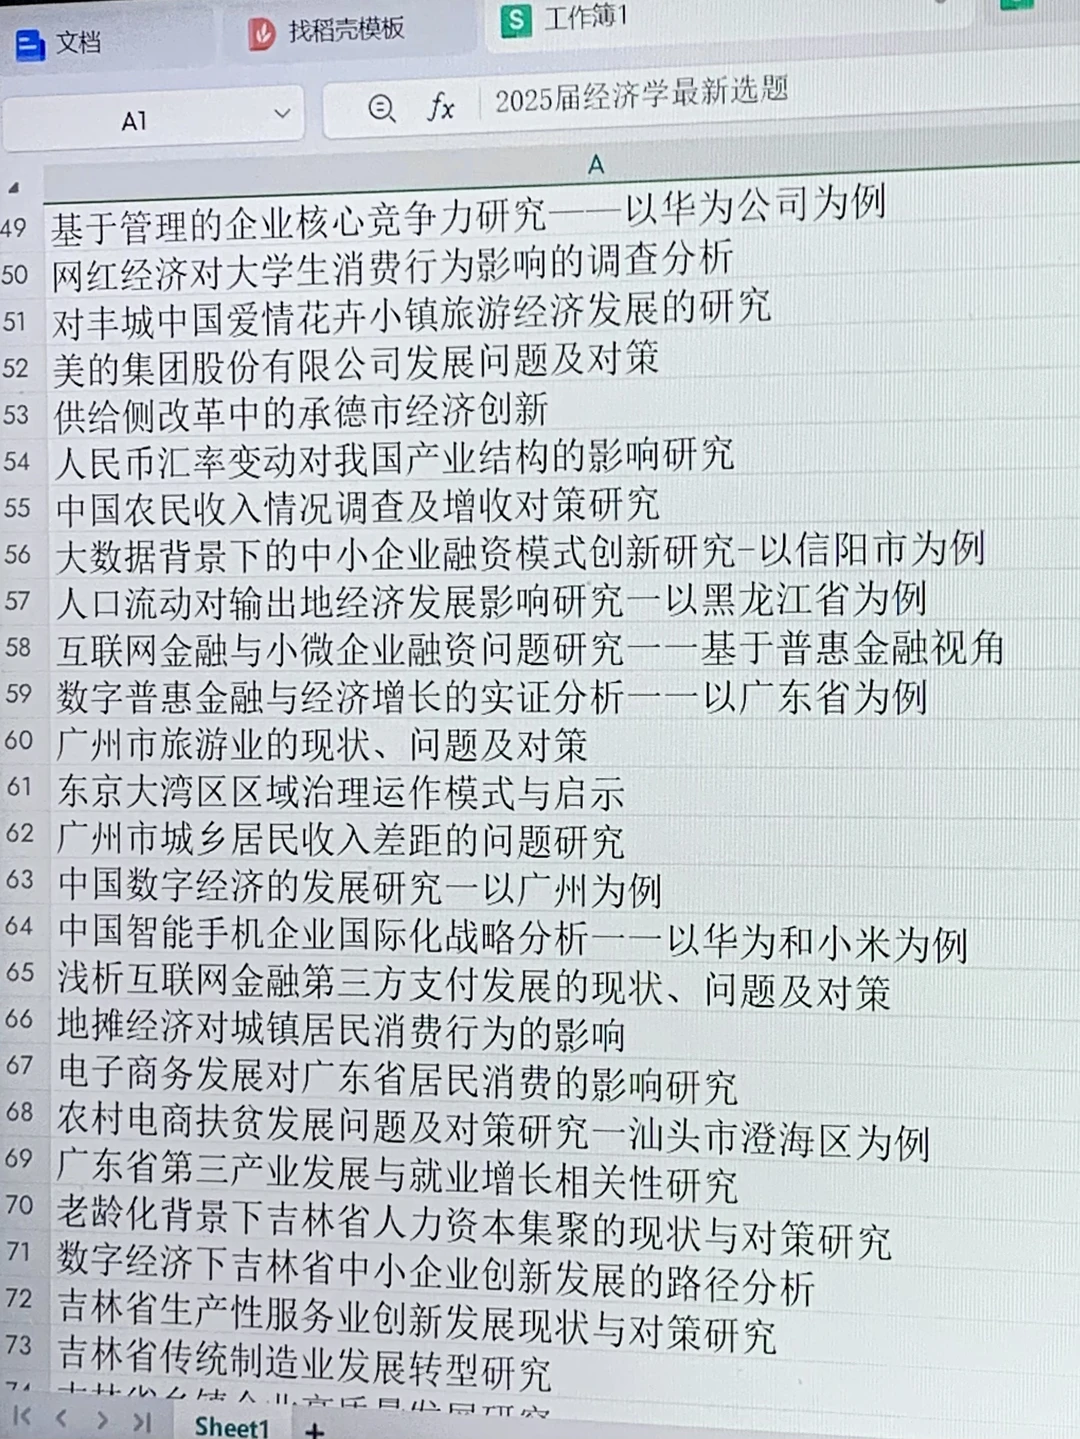 文档
找稻壳模板
工作簿1
A1
fx
2025届经济学最新选题
A
49 基于管理的企业核心竞争力研究——以华为公司为例
50 网红经济对大学生消费行为影响的调查分析
51 对丰城中国爱情花卉小镇旅游经济发展的研究
52 美的集团股份有限公司发展问题及对策
53 供给侧改革中的承德市经济创新
54 人民币汇率变动对我国产业结构的影响研究
55 中国农民收入情况调查及增收对策研究
56 大数据背景下的中小企业融资模式创新研究-以信阳市为例
57 人口流动对输出地经济发展影响研究一以黑龙江省为例
58 互联网金融与小微企业融资问题研究一一基于普惠金融视角
59 数字普惠金融与经济增长的实证分析一一以广东省为例
60 广州市旅游业的现状、问题及对策
61 东京大湾区区域治理运作模式与启示
62 广州市城乡居民收入差距的问题研究
63 中国数字经济的发展研究一以广州为例
64 中国智能手机企业国际化战略分析一一以华为和小米为例
65 浅析互联网金融第三方支付发展的现状、问题及对策
66 地摊经济对城镇居民消费行为的影响
67 电子商务发展对广东省居民消费的影响研究
68 农村电商扶贫发展问题及对策研究一汕头市澄海区为例
69 广东省第三产业发展与就业增长相关性研究
70 老龄化背景下吉林省人力资本集聚的现状与对策研究
71 数字经济下吉林省中小企业创新发展的路径分析
72 吉林省生产性服务业创新发展现状与对策研究
73 吉林省传统制造业发展转型研究
Sheet1